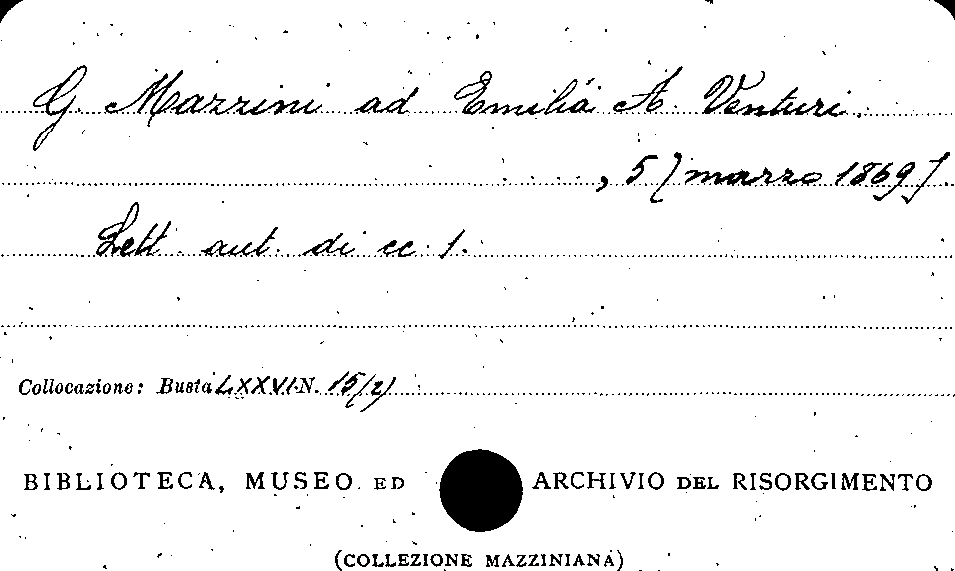 G. Mazzini ad Emilia A. Venturi.
, 5 [marzo 1869].
Lett. aut. di cc. 1.
Collocazione: Busta LXXVI N. 15(2)
BIBLIOTECA, MUSEO ED ARCHIVIO DEL RISORGIMENTO
(COLLEZIONE MAZZINIANA)